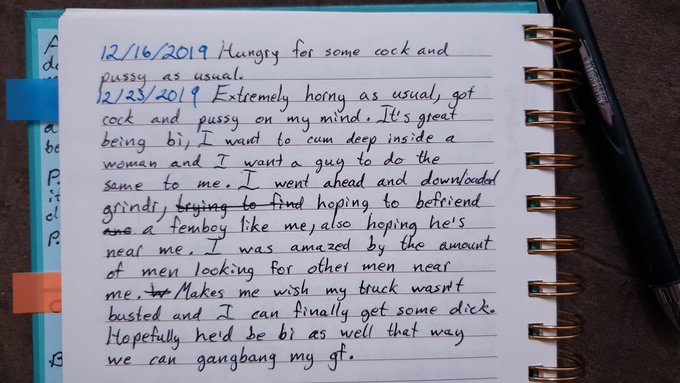 12/16/2019 Hungry for some cock and
pussy as usual.
12/23/2019 Extremely horny as usual, got
cock and pussy on my mind. It's great
being bi, I want to cum deep inside a
woman and I want a guy to do the
same to me. I went ahead and downloaded
grindr, trying to find hoping to befriend
and a femboy like me, also hoping he's
near me. I was amazed by the amount
of men looking for other men near
me. Makes me wish my truck wasn't
busted and I can finally get some dick.
Hopefully he'd be bi as well that way
we can gangbang my gf.